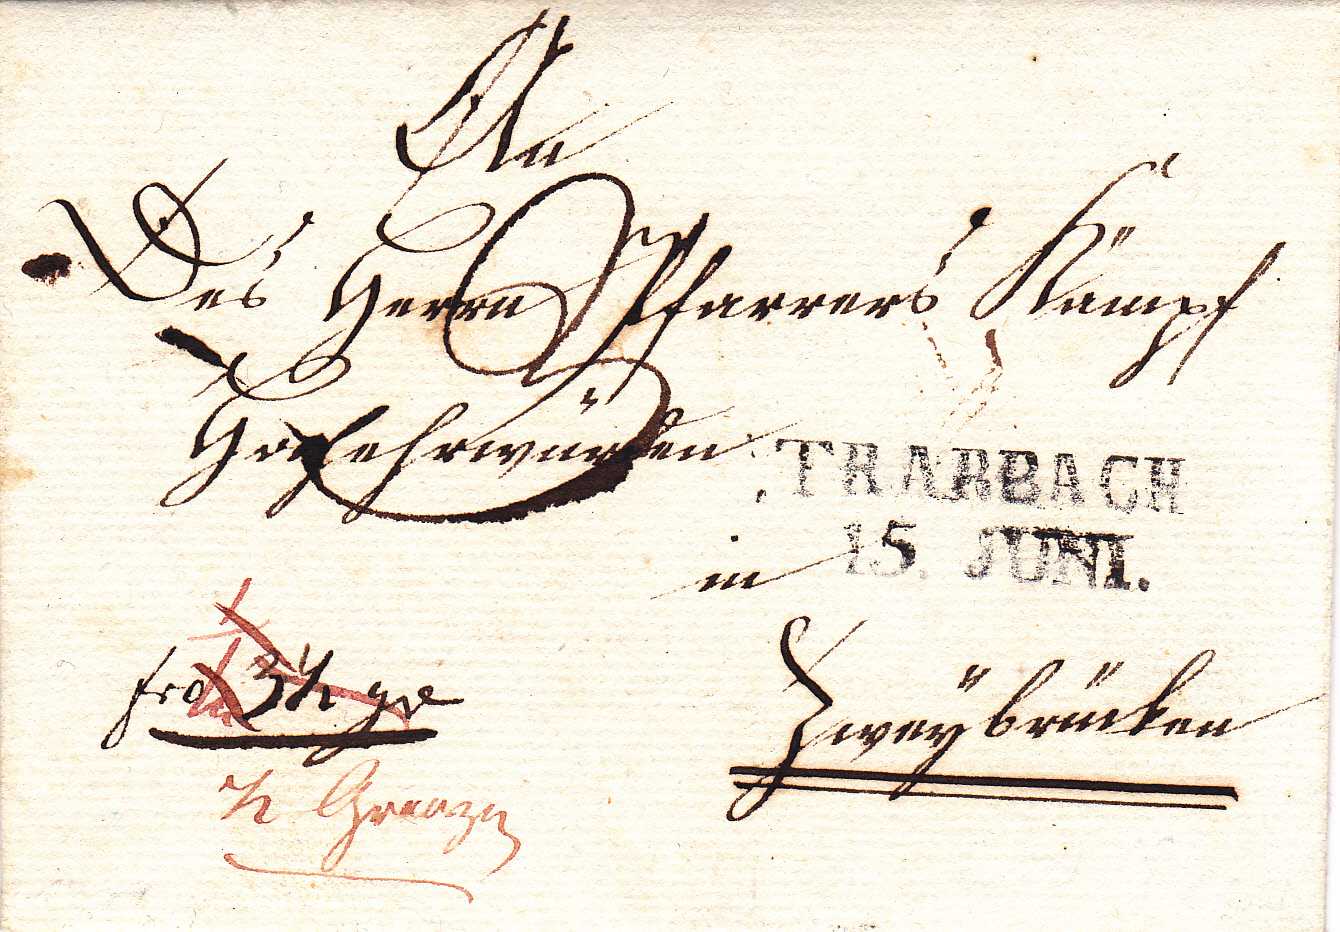 An
Des Herrn Pfarrers Kämpf
Hochehrwürden
TRARBACH
15. JUNI.
in
Zweÿbrücken
fro 3½ gr
½ Grenze